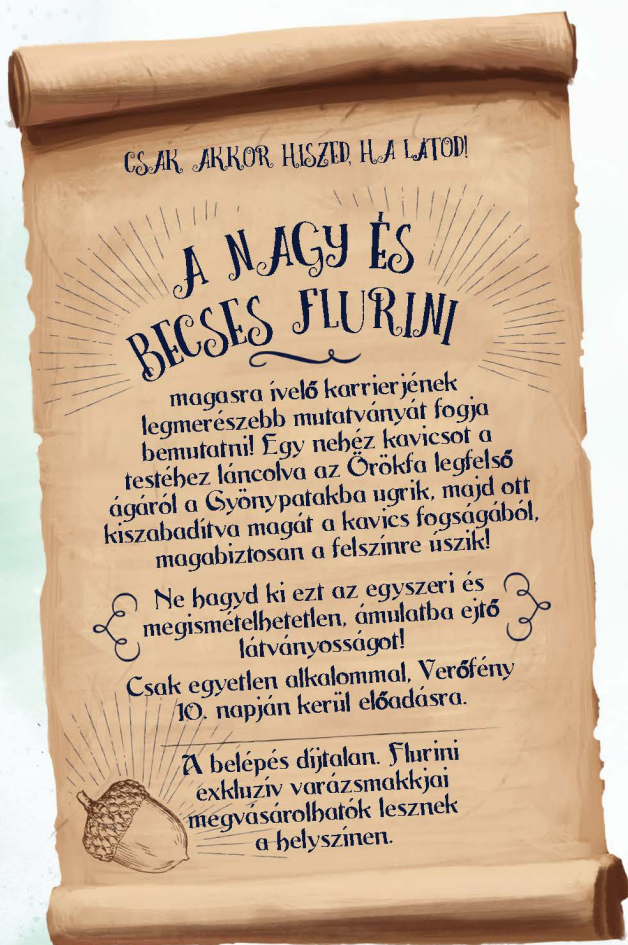 CSAK AKKOR HISZED, HA LÁTOD!
A NAGY ÉS
BECSES FLURINI
magasra ívelő karrierjének
legmerészebb mutatványát fogja
bemutatni! Egy nehéz kavicsot a
testéhez láncolva az Örökfa legfelső
ágáról a Gyöngypatakba ugrik, majd ott
kiszabadítva magát a kavics fogságából,
magabiztosan a felszínre úszik!
Ne hagyd ki ezt az egyszeri és
megismételhetetlen, ámulatba ejtő
látványosságot!
Csak egyetlen alkalommal, Verőfény
10. napján kerül előadásra.
A belépés díjtalan. Flurini
exkluzív varázsmakkjai
megvásárolhatók lesznek
a helyszínen.